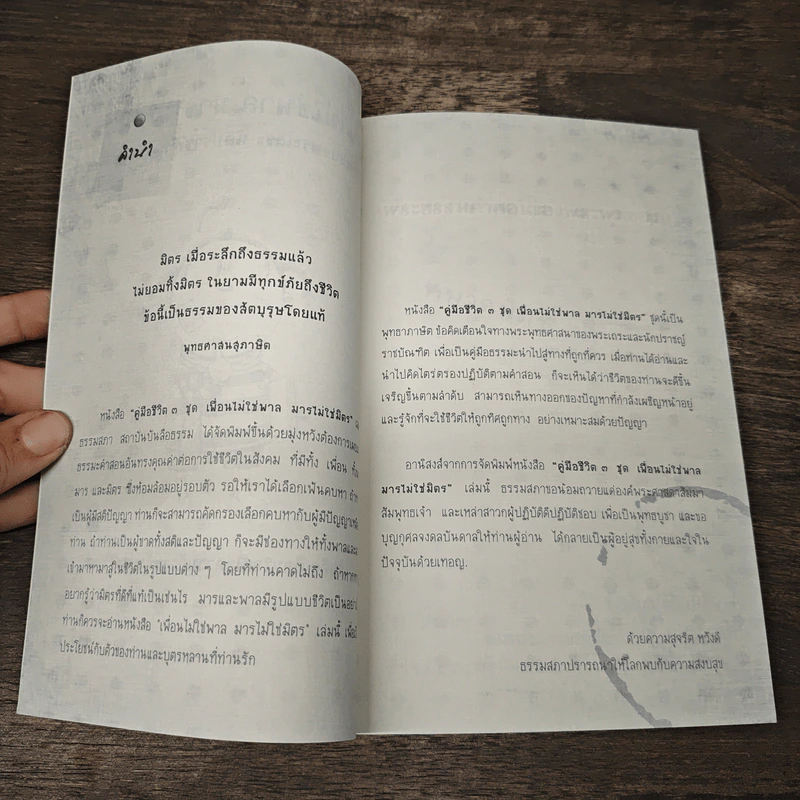 คำนำ
มิตร เมื่อระลึกถึงธรรมแล้ว
ไม่ยอมทิ้งมิตร ในยามมีทุกข์ภัยถึงชีวิต
ข้อนี้เป็นธรรมของสัตบุรุษโดยแท้
พุทธศาสนสุภาษิต
หนังสือ "คู่มือชีวิต ๓ ชุด เพื่อนไม่ใช่พาล มารไม่ใช่มิตร"
ธรรมสภา สถาบันบันลือธรรม ได้จัดพิมพ์ขึ้นด้วยมุ่งหวังต้องการ
ธรรมะคำสอนอันทรงคุณค่าต่อการใช้ชีวิตในสังคม ที่มีทั้ง เพื่อน
มาร และมิตร ซึ่งห้อมล้อมอยู่รอบตัว รอให้เราได้เลือกเฟ้นคบหา
เป็นผู้มีสติปัญญา ท่านก็จะสามารถคัดกรองเลือกคบหากับผู้มีปัญญา
ท่าน ถ้าท่านเป็นผู้ขาดทั้งสติและปัญญา ก็จะมีช่องทางให้ทั้งพาลและ
เข้ามาหามาสู่ในชีวิตในรูปแบบต่าง ๆ โดยที่ท่านคาดไม่ถึง
อยากรู้ว่ามิตรที่ดีที่แท้เป็นเช่นไร มารและพาลมีรูปแบบชีวิตเป็นอย่าง
ท่านก็ควรจะอ่านหนังสือ "เพื่อนไม่ใช่พาล มารไม่ใช่มิตร" เล่มนี้
ประโยชน์กับตัวของท่านและบุตรหลานที่ท่านรัก
หนังสือ "คู่มือชีวิต ๓ ชุด เพื่อนไม่ใช่พาล มารไม่ใช่มิตร" ชุดนี้เป็น
พุทธาภาษิต ข้อคิดเตือนใจทางพระพุทธศาสนาของพระเถระและนักปราชญ์
ราชบัณฑิต เพื่อเป็นคู่มือธรรมะนำไปสู่ทางที่ถูกที่ควร เมื่อท่านได้อ่านและ
นำไปคิดไตร่ตรองปฏิบัติตามคำสอน ก็จะเห็นได้ว่าชีวิตของท่านจะดีขึ้น
เจริญขึ้นตามลำดับ สามารถเห็นทางออกของปัญหาที่กำลังเผชิญหน้าอยู่
และรู้จักที่จะใช้ชีวิตให้ถูกทิศถูกทาง อย่างเหมาะสมด้วยปัญญา
อานิสงส์จากการจัดพิมพ์หนังสือ "คู่มือชีวิต ๓ ชุด เพื่อนไม่ใช่พาล
มารไม่ใช่มิตร" เล่มนี้ ธรรมสภาขอน้อมถวายแด่องค์พระศาสดาสัมมา
สัมพุทธเจ้า และเหล่าสาวกผู้ปฏิบัติดีปฏิบัติชอบ เพื่อเป็นพุทธบูชา และขอ
บุญกุศลจงดลบันดาลให้ท่านผู้อ่าน ได้กลายเป็นผู้อยู่สุขทั้งกายและใจใน
ปัจจุบันด้วยเทอญ.
ด้วยความสุจริต หวังดี
ธรรมสภาปรารถนาให้โลกพบกับความสงบสุข